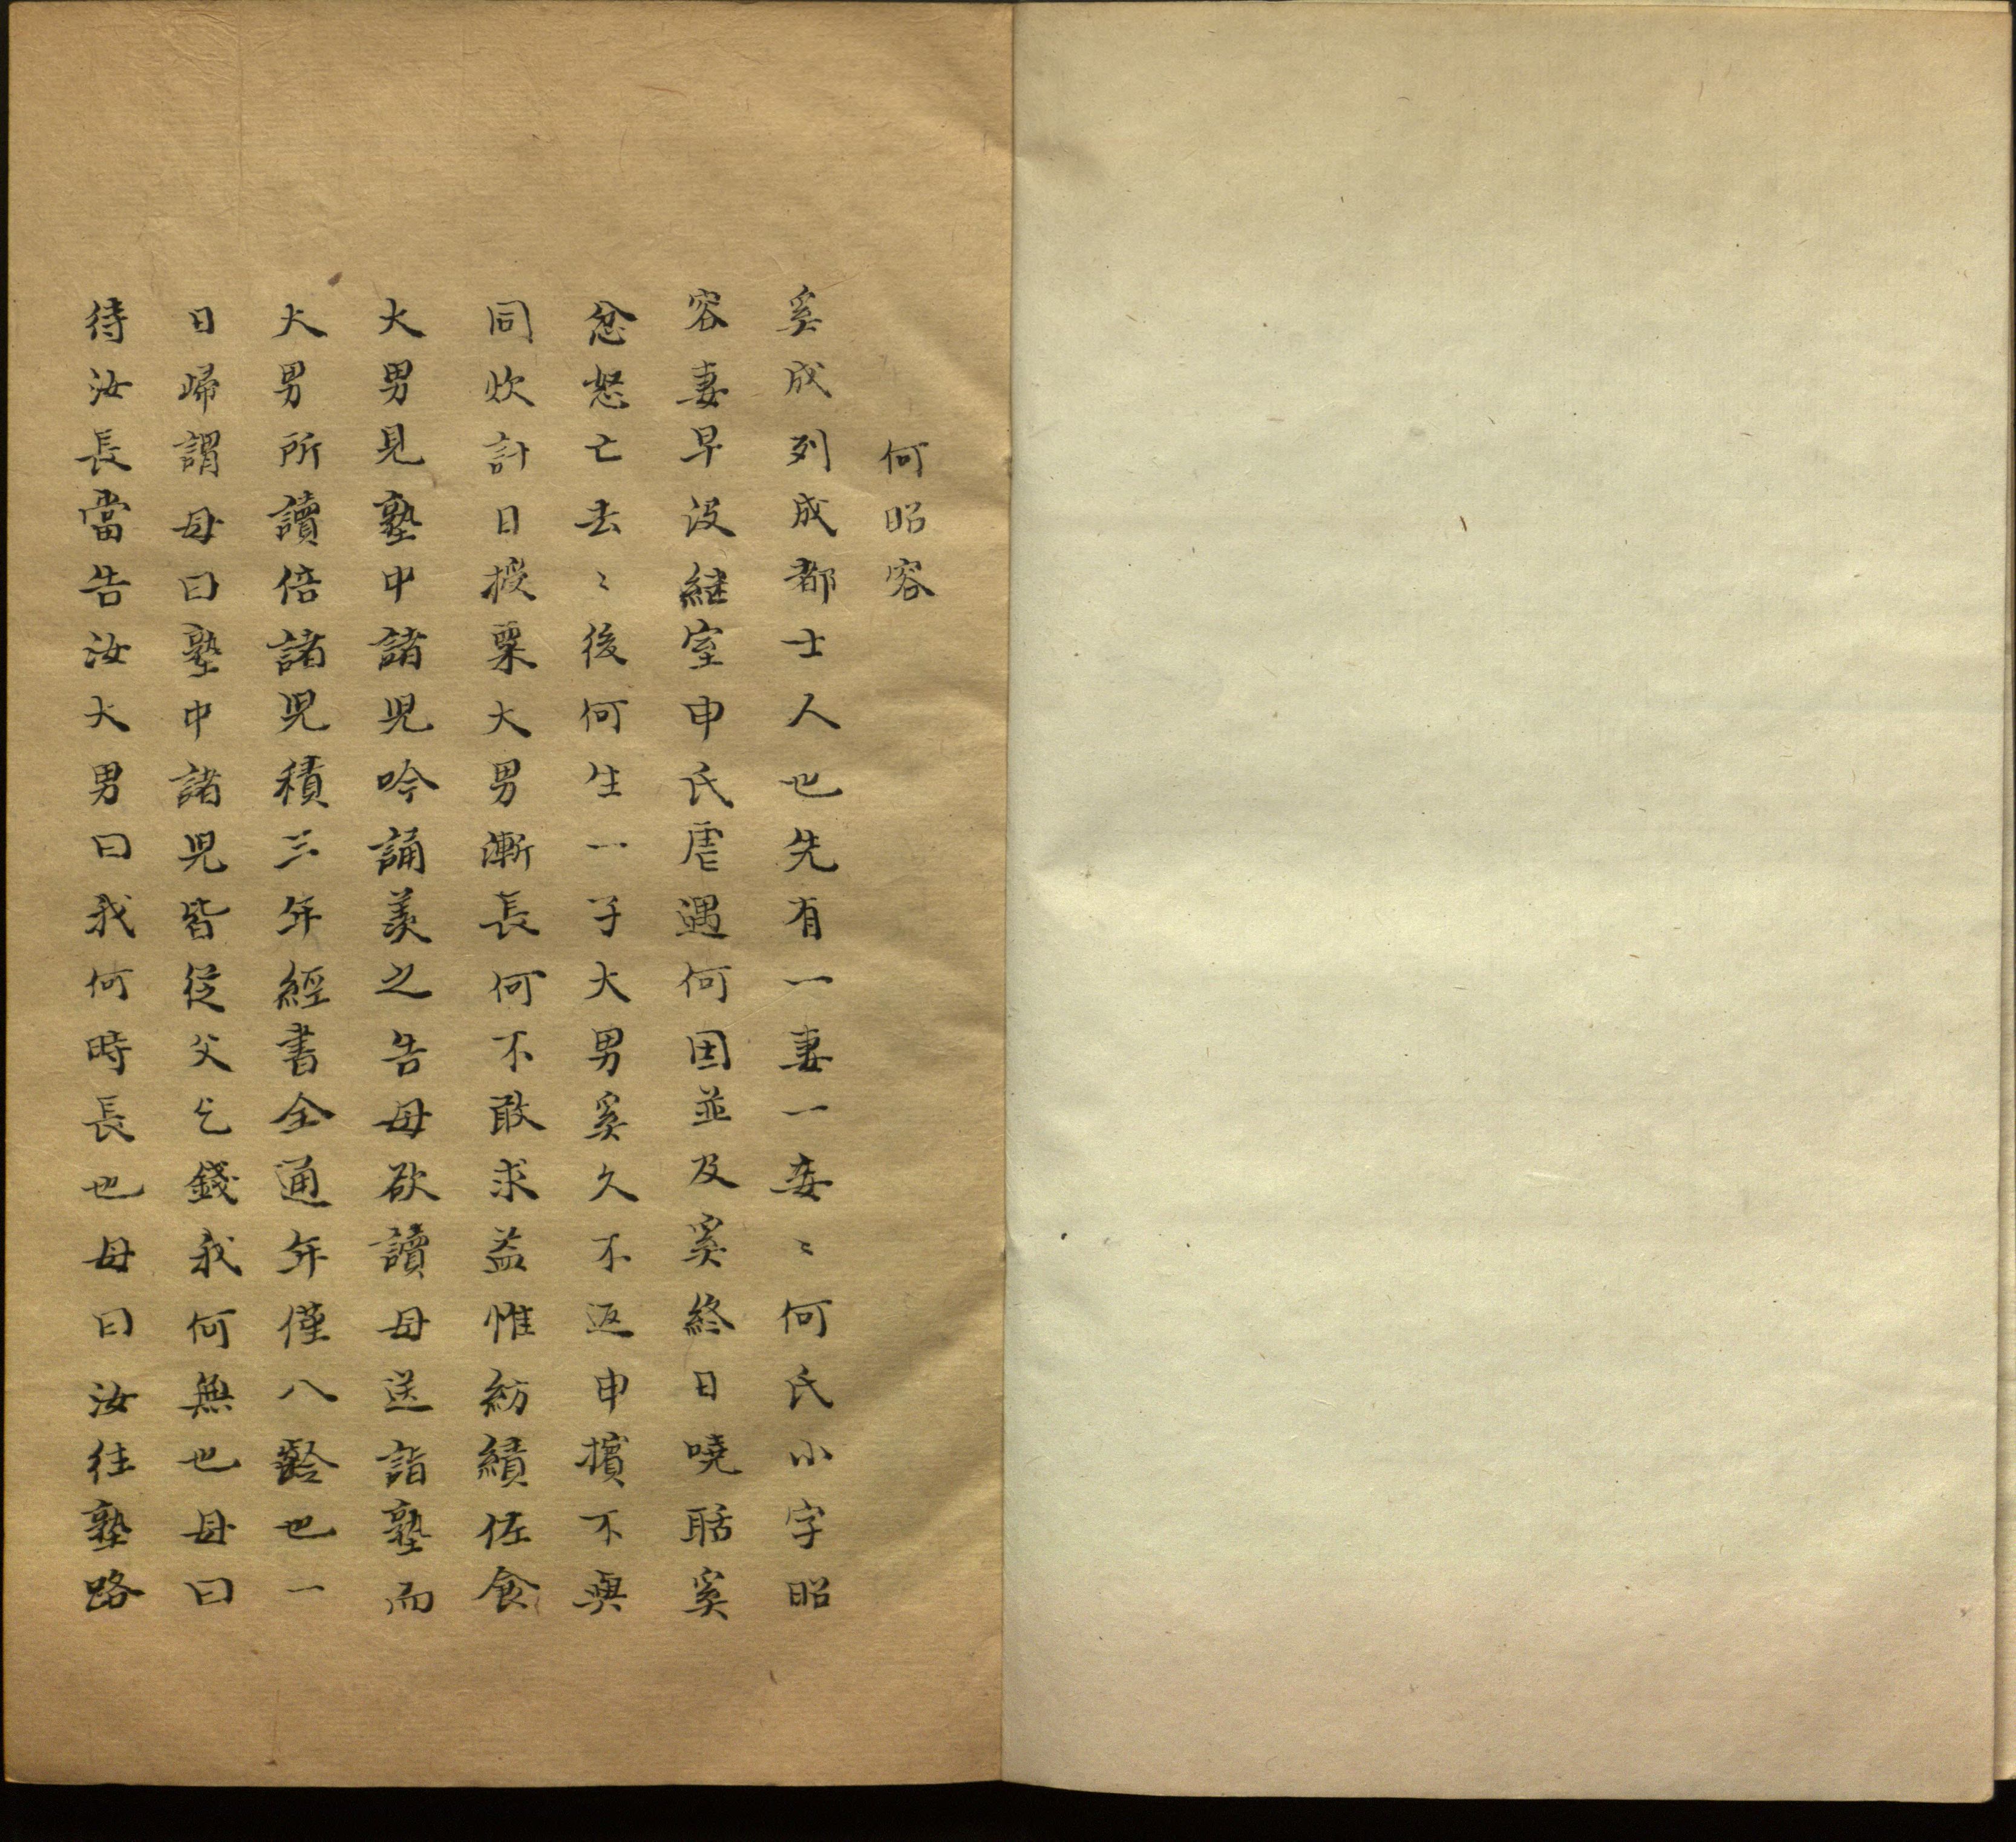 何昭容
奚成列成都士人也先有一妻一妾〻何氏小字昭
容妻早没継室申氏虐遇何因並及奚終日嘵聒奚
忿怒亡去〻後何生一子大男奚久不返申擯不與
同炊計日授粟大男漸長何不敢求益惟紡績佐食
大男見塾中諸児吟誦羨之告母欲讀母送詣塾而
大男所讀倍諸児積三年經書全通年僅八齡也一
日歸謂母曰塾中諸児皆従父乞錢我何無也母曰
待汝長當告汝大男曰我何時長也母曰汝往塾路